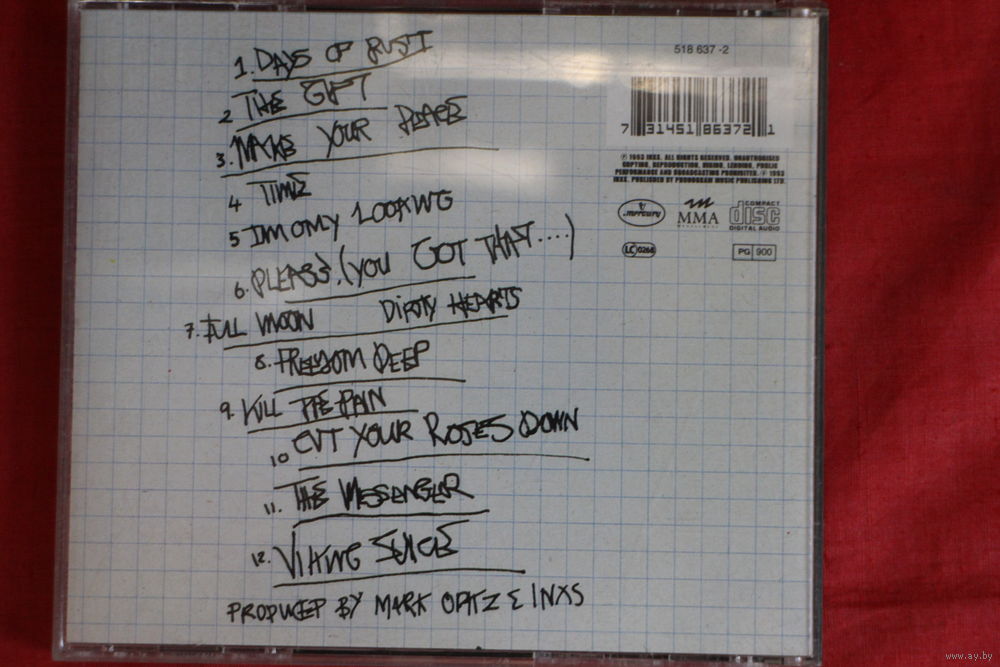 1. DAYS OF RUST
2 THE GIFT
3. MAKE YOUR PEACE
4 TIME
5 IM ONLY LOOKING
6. PLEASE. (YOU GOT THAT....)
7. FULL MOON DIRTY HEARTS
8. FREEDOM DEEP
9. KILL THE PAIN
10 CUT YOUR ROSES DOWN
11. THE MESSENGER
12. VIKING JUICE
PRODUCED BY MARK OPITZ & INXS
518 637 -2
7 31451 86372 1
℗ 1993 INXS. ALL RIGHTS RESERVED. UNAUTHORISED
COPYING, REPRODUCTION, HIRING, LENDING, PUBLIC
PERFORMANCE AND BROADCASTING PROHIBITED. © 1993
INXS. PUBLISHED BY PHONOGRAM MUSIC PUBLISHING LTD.
mercury
MMA
MANAGEMENT
COMPACT
disc
DIGITAL AUDIO
LC 0268
PG 900
www.ay.by